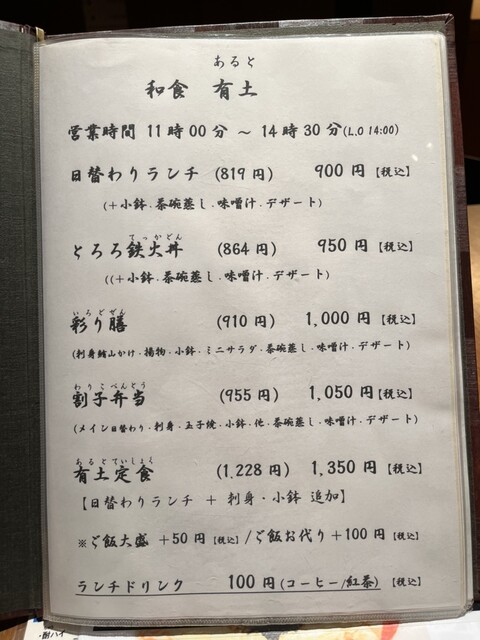 あると
和食 有土
営業時間 11時00分 ～ 14時30分(L.O 14:00)
日替わりランチ (819円) 900円【税込】
(＋小鉢.茶碗蒸し.味噌汁.デザート)
てっかどん
とろろ鉄火丼 (864円) 950円【税込】
((＋小鉢.茶碗蒸し.味噌汁.デザート)
いろどぜん
彩り膳 (910円) 1,000円【税込】
(刺身鰭山かけ.揚物.小鉢.ミニサラダ.茶碗蒸し.味噌汁.デザート)
わりこべんとう
割子弁当 (955円) 1,050円【税込】
(メイン日替わり.刺身.玉子焼.小鉢.他.茶碗蒸し.味噌汁.デザート)
あるとていしょく
有土定食 (1.228円) 1,350円【税込】
【日替わりランチ ＋ 刺身・小鉢 追加】
※ご飯大盛 ＋50円【税込】/ご飯お代り＋100円【税込】
ランチドリンク 100円(コーヒー/紅茶)【税込】
・酎ハイ